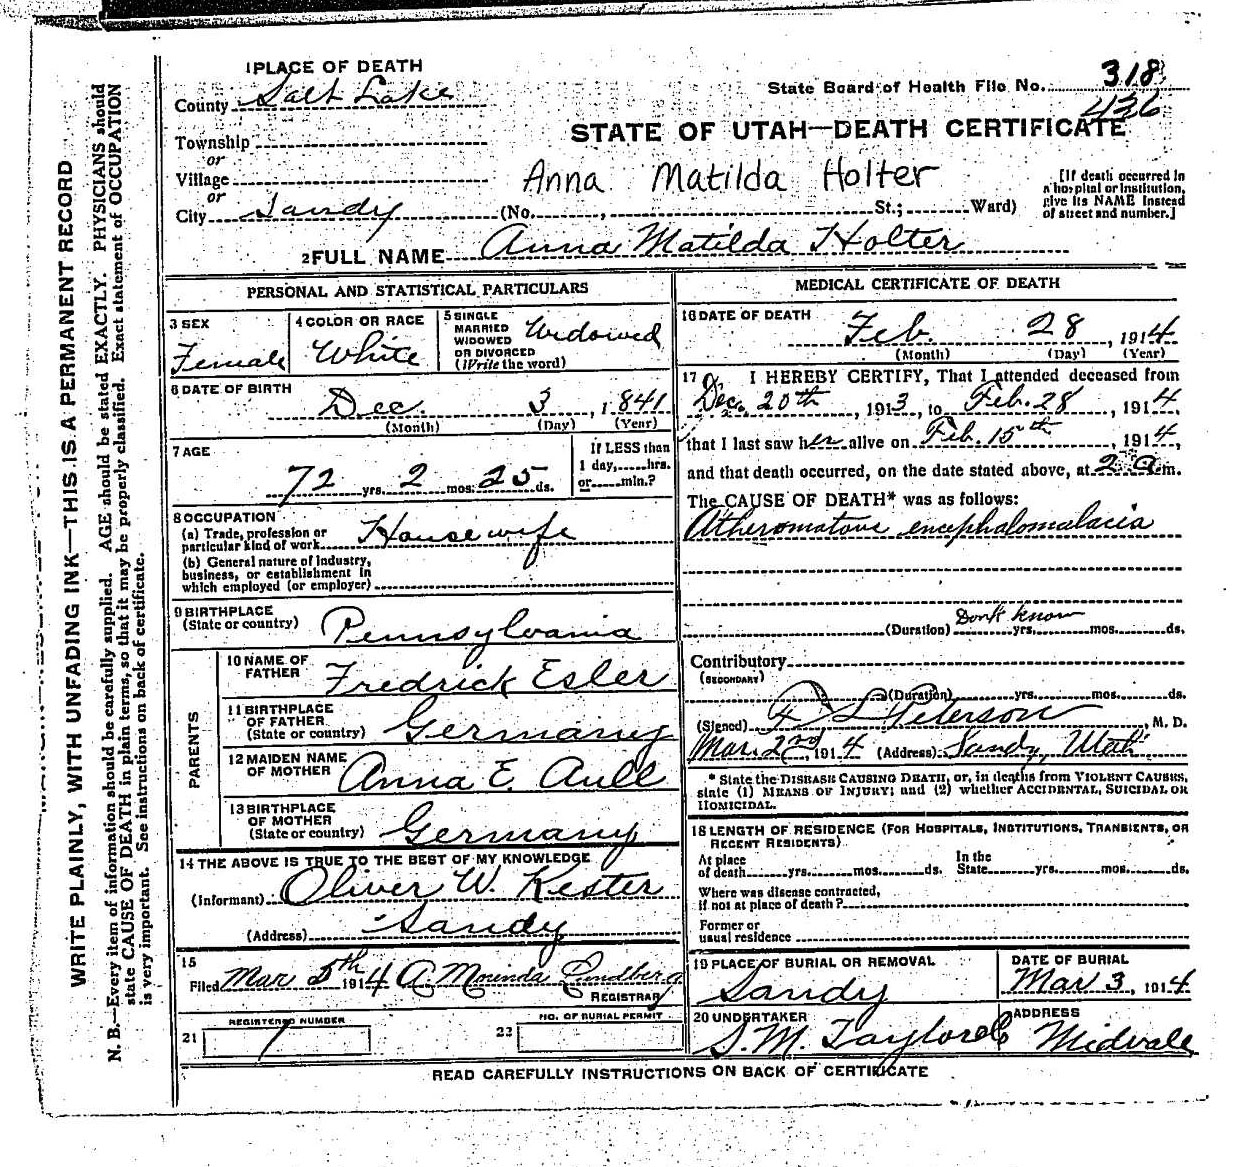 1 PLACE OF DEATH
County Salt Lake
State Board of Health File No. 318
436
Township
or
Village
or
City Sandy (No. , St.; Ward)
STATE OF UTAH—DEATH CERTIFICATE
Anna Matilda Holter
[If death occurred in
a hospital or institution,
give its NAME instead
of street and number.]
2 FULL NAME Anna Matilda Holter
PERSONAL AND STATISTICAL PARTICULARS
3 SEX
Female
4 COLOR OR RACE
White
5 SINGLE
MARRIED
WIDOWED
OR DIVORCED
(Write the word)
Widowed
6 DATE OF BIRTH
Dec. 3, 1841
(Month) (Day) (Year)
7 AGE
72 yrs. 2 mos. 25 ds.
If LESS than
1 day, hrs.
or min.?
8 OCCUPATION
(a) Trade, profession or
particular kind of work Housewife
(b) General nature of industry,
business, or establishment in
which employed (or employer)
9 BIRTHPLACE
(State or country) Pennsylvania
PARENTS
10 NAME OF
FATHER Fredrick Esler
11 BIRTHPLACE
OF FATHER
(State or country) Germany
12 MAIDEN NAME
OF MOTHER Anna E. Aull
13 BIRTHPLACE
OF MOTHER
(State or country) Germany
14 THE ABOVE IS TRUE TO THE BEST OF MY KNOWLEDGE
(Informant) Oliver W. Kester
(Address) Sandy
15
Filed Mar 5th 1914 A. Lindberg
REGISTRAR
21 REGISTERED NUMBER
1
22 NO. OF BURIAL PERMIT
MEDICAL CERTIFICATE OF DEATH
16 DATE OF DEATH
Feb. 28, 1914
(Month) (Day) (Year)
17 I HEREBY CERTIFY, That I attended deceased from
Dec. 20th, 1913, to Feb. 28, 1914,
that I last saw her alive on Feb. 15th, 1914,
and that death occurred, on the date stated above, at 2 a.m.
The CAUSE OF DEATH* was as follows:
Atheromatous encephalomalacia
Don't know
(Duration) yrs. mos. ds.
Contributory
(SECONDARY)
(Duration) yrs. mos. ds.
(Signed) Peterson, M. D.
Mar. 2nd, 1914 (Address) Sandy, Utah
* State the DISEASE CAUSING DEATH, or, in deaths from VIOLENT CAUSES,
state (1) MEANS OF INJURY; and (2) whether ACCIDENTAL, SUICIDAL OR
HOMICIDAL.
18 LENGTH OF RESIDENCE (FOR HOSPITALS, INSTITUTIONS, TRANSIENTS, OR
RECENT RESIDENTS)
At place
of death yrs. mos. ds.
In the
State yrs. mos. ds.
Where was disease contracted,
if not at place of death?
Former or
usual residence
19 PLACE OF BURIAL OR REMOVAL
Sandy
DATE OF BURIAL
Mar 3, 1914
20 UNDERTAKER
S. M. Taylor & Co
ADDRESS
Midvale
READ CAREFULLY INSTRUCTIONS ON BACK OF CERTIFICATE
WRITE PLAINLY, WITH UNFADING INK—THIS IS A PERMANENT RECORD
N. B.—Every item of information should be carefully supplied. AGE should be stated EXACTLY. PHYSICIANS should
state CAUSE OF DEATH in plain terms, so that it may be properly classified. Exact statement of OCCUPATION
is very important. See instructions on back of certificate.